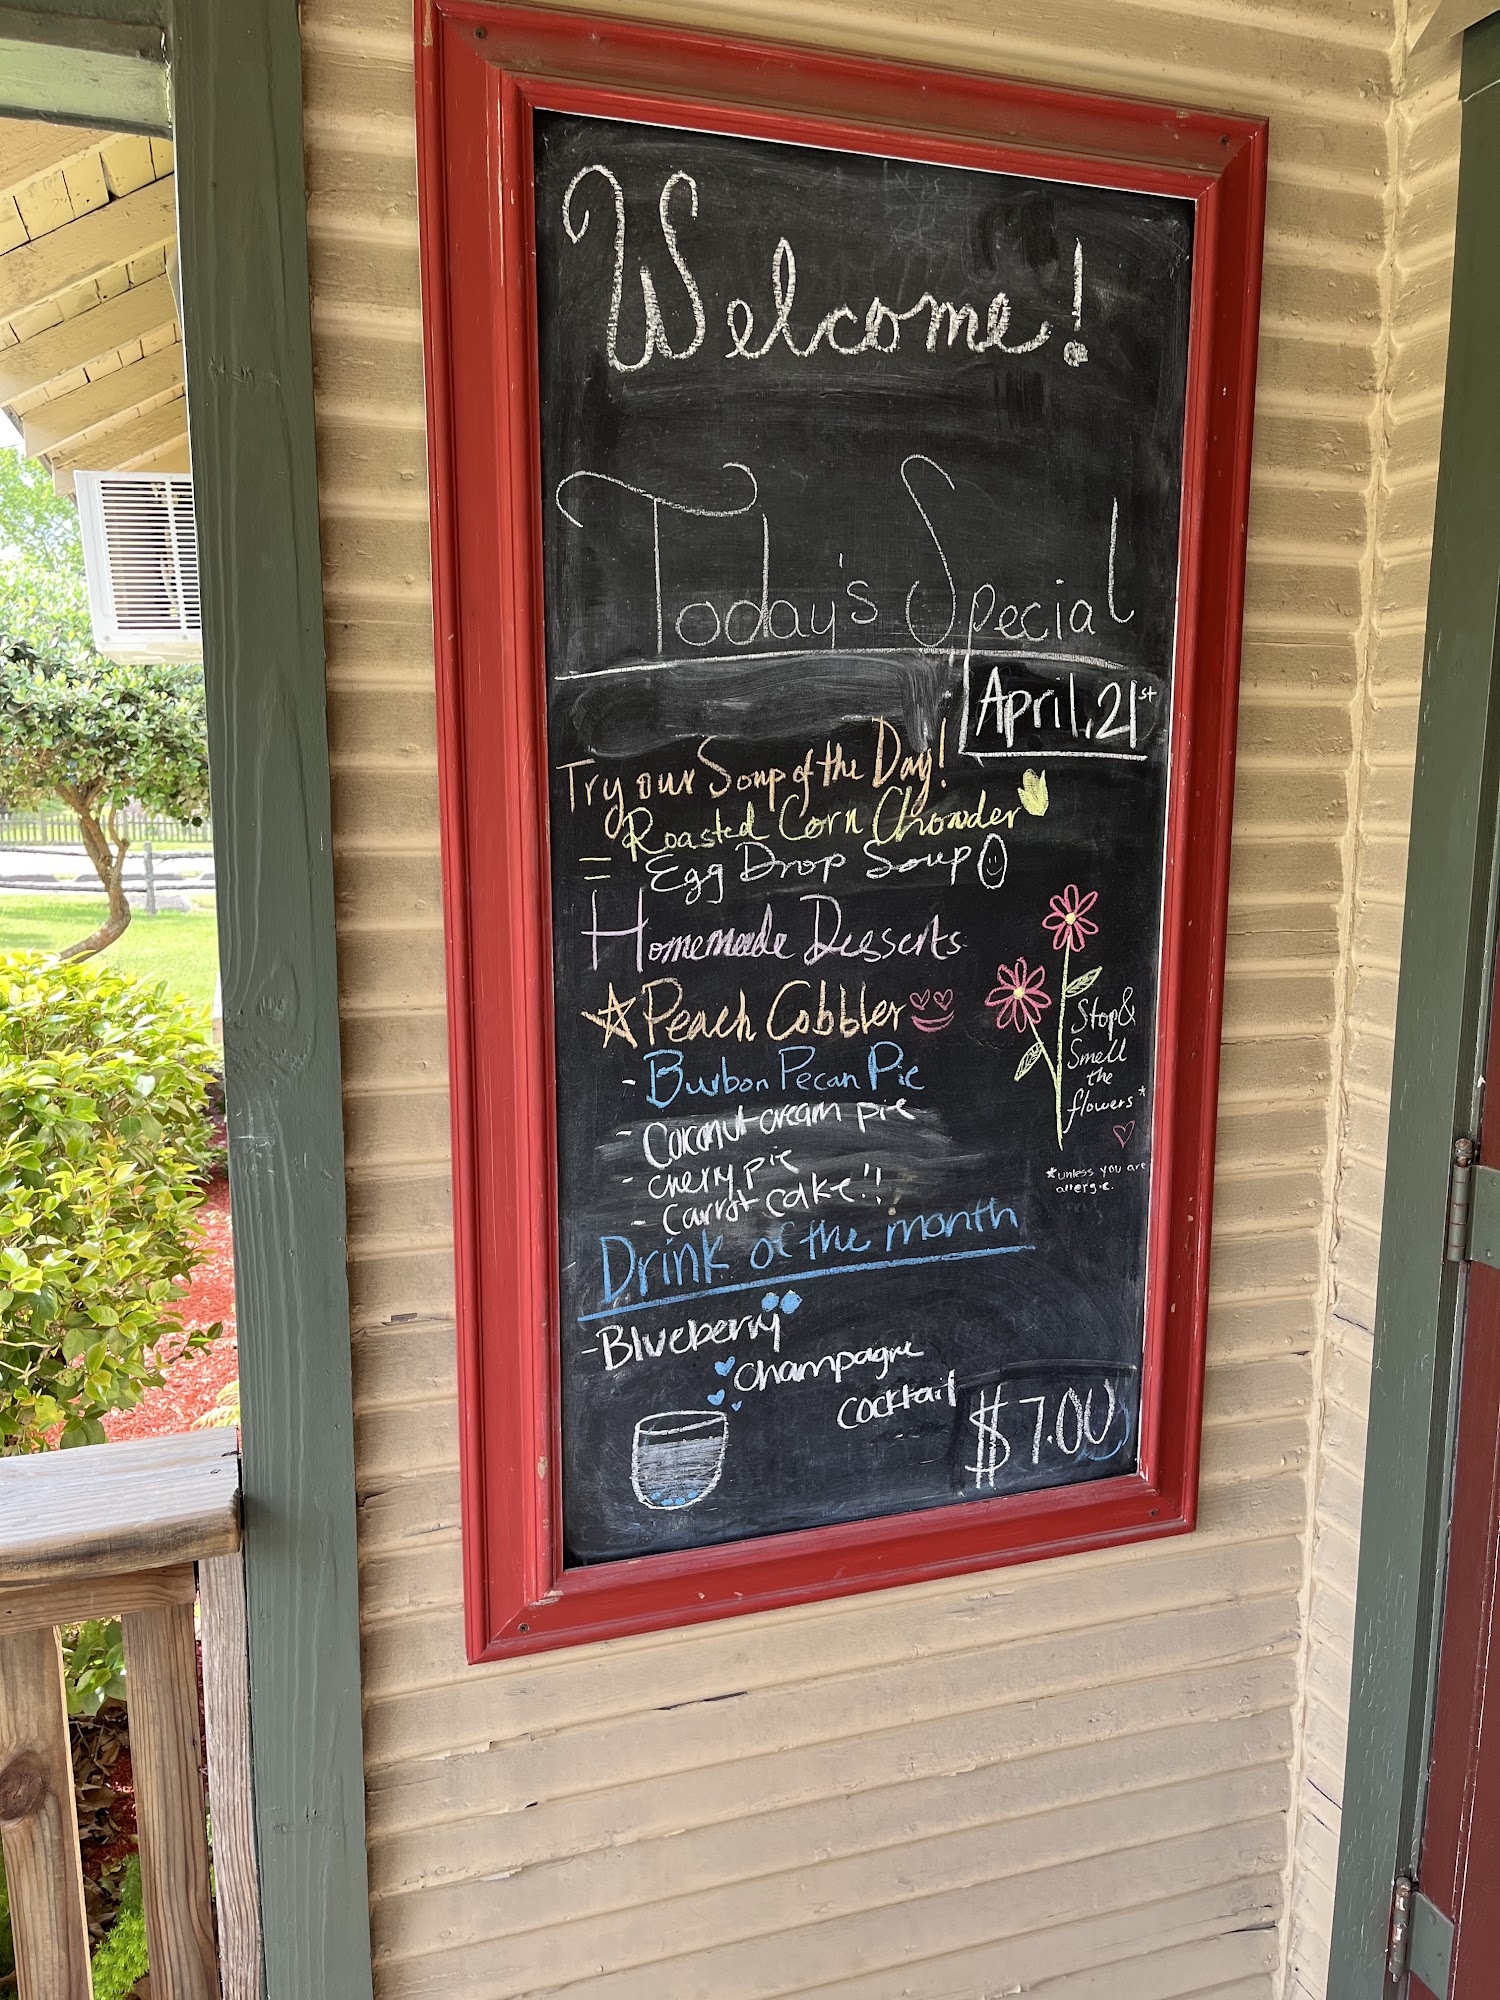 Welcome!
Today's Special
April, 21st
Try our Soup of the Day!
Roasted Corn Chowder
= Egg Drop Soup
Homemade Desserts
Peach Cobbler
- Burbon Pecan Pie
- Coconut cream pie
- cherry pie
- carrot cake!!
Stop &
Smell
the
flowers*
*unless you are
allergic.
Drink of the month
- Blueberry
champagne
cocktail
$7.00